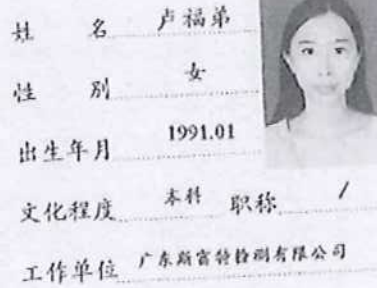 姓 名 卢福弟
性 别 女
出生年月 1991.01
文化程度 本科 职称 /
工作单位 广东斯富特检测有限公司